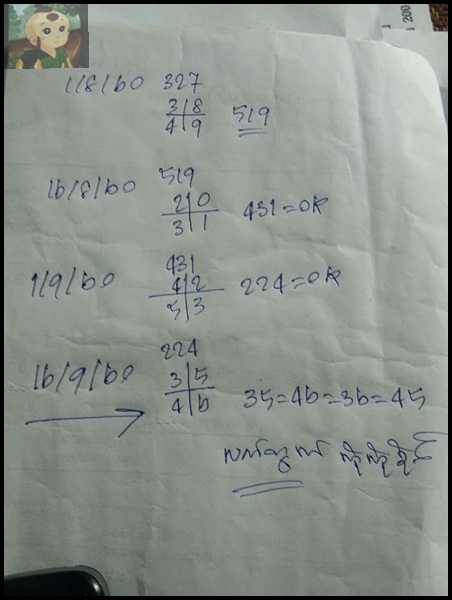 1/8/60 327
3|8
4|9 519
16/8/60 519
2|0
3|1 431=OK
1/9/60 431
4|2
5|3 224=OK
16/9/60 224
3|5
4|6 35=46=36=45
1 200